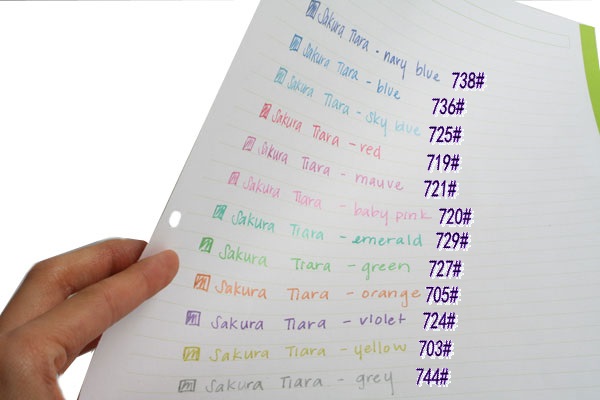 Sakura Tiara - navy blue 738#
Sakura Tiara - blue 736#
Sakura Tiara - sky blue 725#
Sakura Tiara - red 719#
Sakura Tiara - mauve 721#
Sakura Tiara - baby pink 720#
Sakura Tiara - emerald 729#
Sakura Tiara - green 727#
Sakura Tiara - orange 705#
Sakura Tiara - violet 724#
Sakura Tiara - yellow 703#
Sakura Tiara - grey 744#